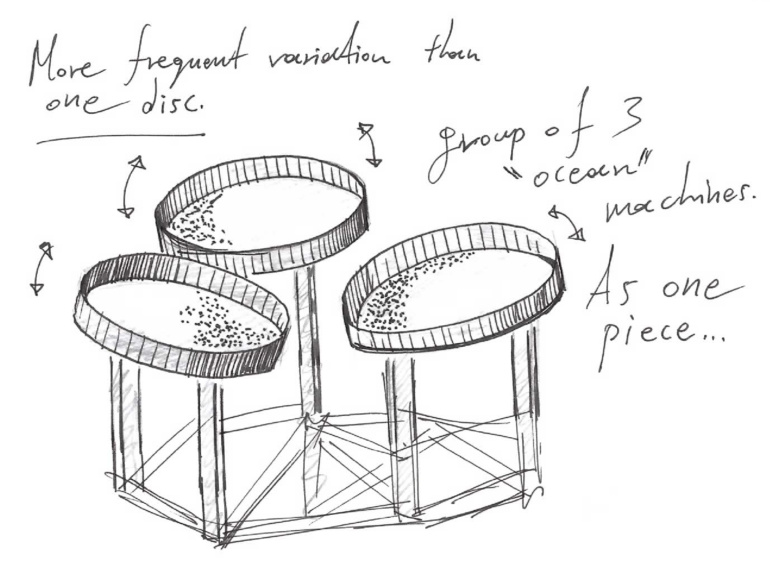 More frequent variation than
one disc.
group of 3
"ocean"
machines.
As one
piece...